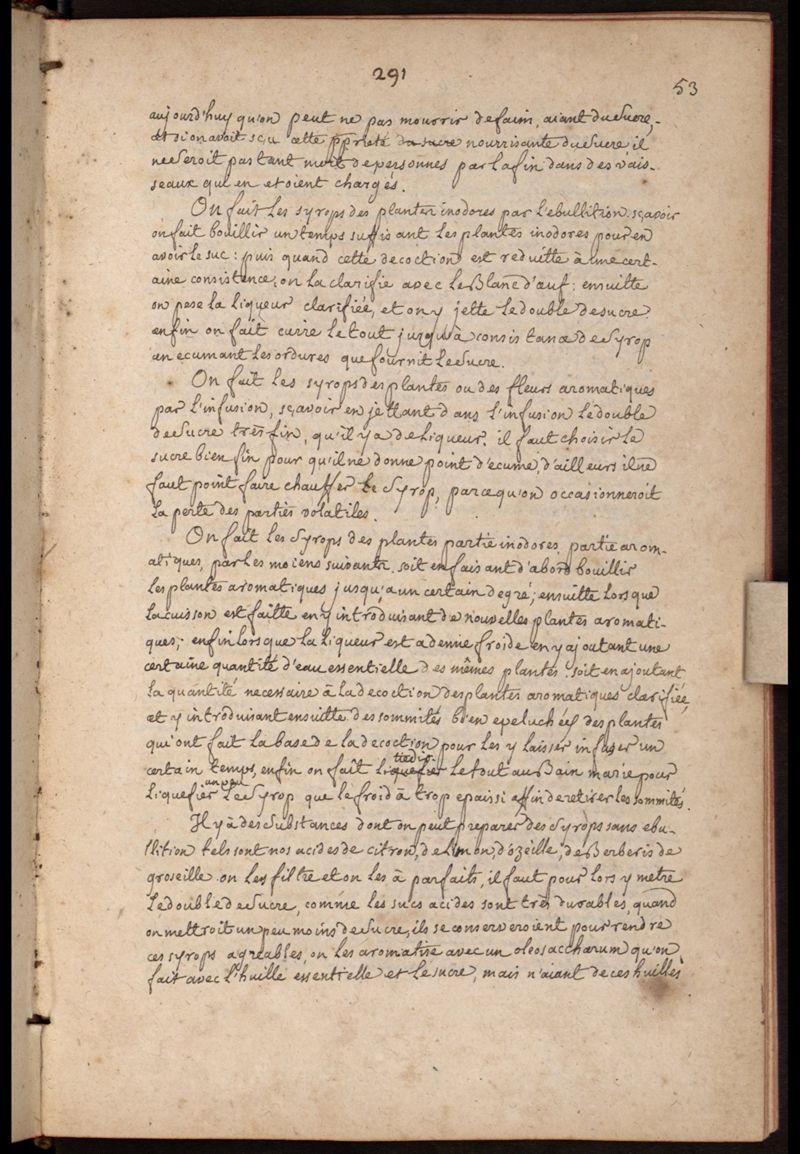 291
53
aujourd'huy qu'on peut ne pas mourrir de faim, aiant du sucre,
et si on avoit sçu cette ppriété du sucre nourrissante du sucre il
ne seroit pas tant mort de personnes par la fin dans des vais-
seaux qui en etoient chargés.
On fait les syrops des plantes inodores par l'ebullition sçavoir
on fait bouillir un temps suffisant les plantes inodores pour en
avoir le suc: puis quand cette decoction est reduitte à une cert-
aine consistence, on la clarifie avec le Blanc d'œuf: ensuitte
on pese la liqueur clarifiée, et on y jette le double de sucre
enfin on fait cuire le tout jusqu'à consistance de Syrop
en ecumant les ordures que fournit le sucre.
On fait les syrops des plantes ou des fleurs aromatiques
par l'infusion, sçavoir en jettant dans l'infusion le double
de sucre très fin, qu'il y a de liqueur. il faut choisir le
sucre bien fin pour qu'il ne donne point d'ecume, d'ailleurs il ne
faut point faire chauffer le Syrop, parcequ'on occasionneroit
la perte des parties volatiles.
On fait les Syrops des plantes partie inodores, partie arom-
atiques, par les moiens suivants, soit en faisant d'abord bouillir
les plantes aromatiques jusqu'a un certain degré; ensuitte lorsque
la cuisson est faitte en y introduisant de nouvelles plantes aromati-
ques; enfin lorsque la liqueur est a demie froide en y ajoutant une
certaine quantité d'eau essentielle des mêmes plantes: soit en ajoutant
la quantité necessaire à la decoction des plantes aromatiques clarifiée,
et y introduisant ensuitte des sommités bien epeluchéés des plantes
qui ont fait la base de la decoction pour les y laisser infuser un
certain temps, enfin on fait liquefier tiedir le tout au Bain marie pour
liquefier un peu le Syrop que le froid à trop epaissi affin de retirer les sommités.
Il y à des substances dont on peut preparer des Syrops sans ebu-
llition tels sont nos acides de citron, de Limon, d'ozeille, de Berberis de
groseille on les filtre et on les à parfaits, il faut pour lors y metre
le double de sucre, comme les sucs acides sont très durables, quand
on mettroit un peu moins de sucre, ils se conserveroient pour rendre
ces syrops agreables, on les aromatise avec un oleosaccharum qu'on
fait avec l'huille essentielle et le sucre, mais n'aiant de ces huilles